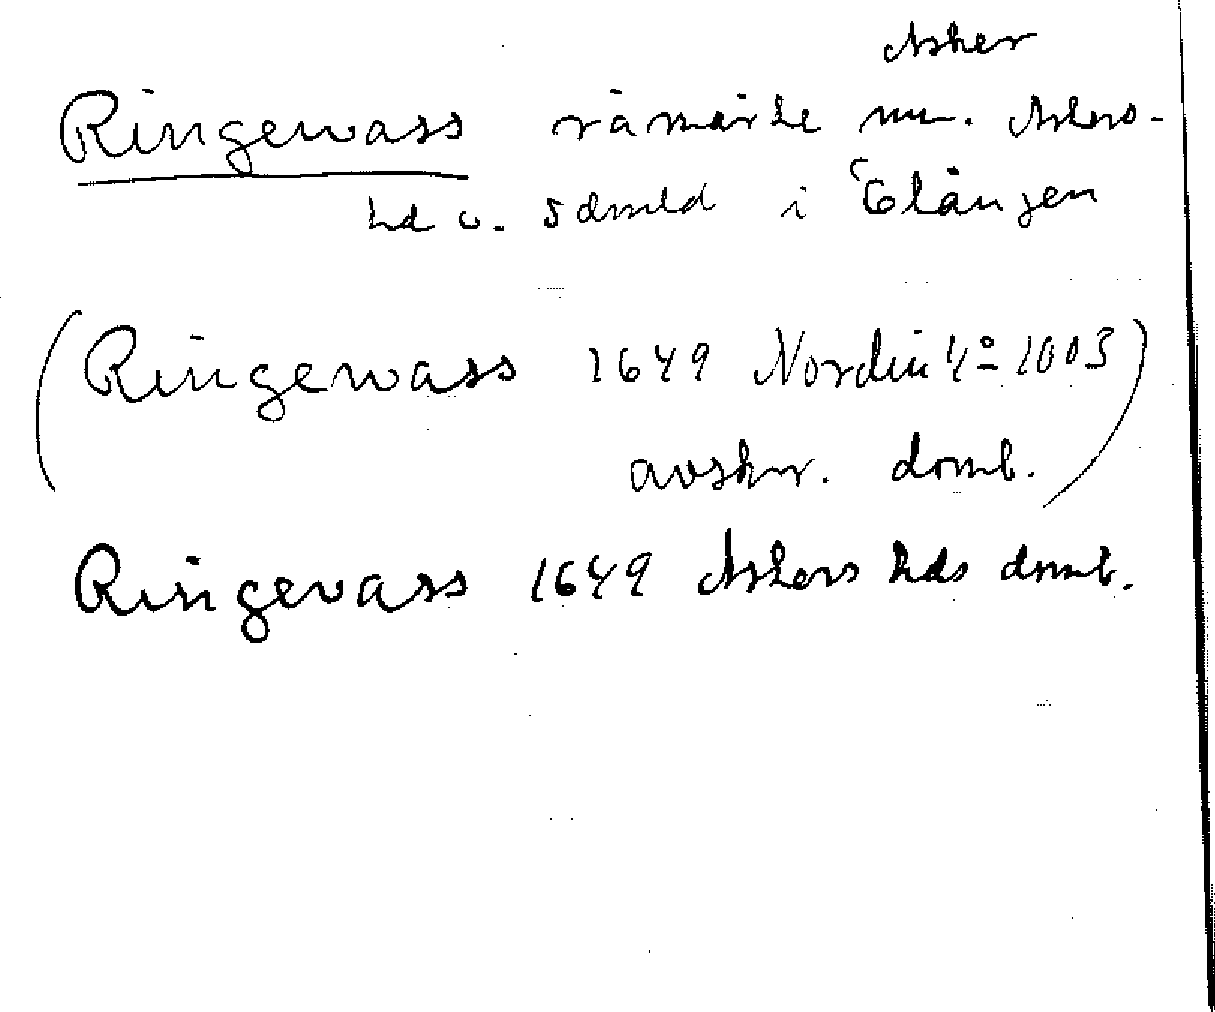 Asker
Ringewass råmärke mn. Askers-
hd o. Sdmld i Elången
(Ringewass 1649 Nordin 4:o 1003
avskr. domb.)
Ringevass 1649 Askers hds domb.